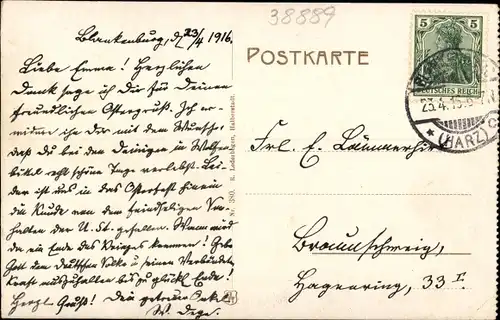 38889
Blankenburg, d. 23/4 1916.
Liebe Emma! Herzlichen
Dank sage ich dir für Deinen
freundlichen Ostergruß. Ich er-
widere ihn dir mit dem Wunsche,
daß Du bei den Deinigen in Wolfen-
büttel recht schöne Tage verlebst. Lei-
der ist uns in das Osterfest hinein
die Kunde von dem feindseligen Ver-
halten der U. St. gefallen. Wann wird
da ein Ende des Krieges kommen! Gebe
Gott dem deutschen Volke u. seinen Verbündeten
Kraft auszuhalten bis zu glückl. Ende!
Herzl. Gruß! Dein getreuer Onkel
W. Dege.
Nr. 380. R. Lederbogen, Halberstadt.
POSTKARTE
5 5
DEUTSCHES REICH
23.4.16
* (HARZ)
Frl. E.
Braunschweig,
Hagenring, 33 I.